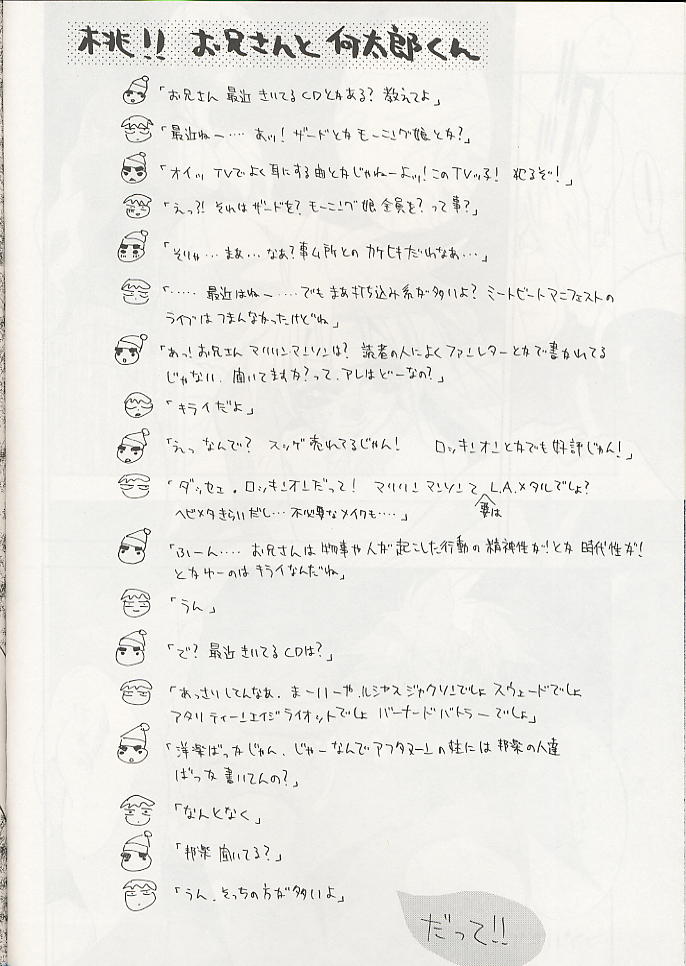 桃!! お兄さんと 何太郎くん
「お兄さん 最近 きいてるCDとかある? 教えてよ」
「最近ねー…… あッ! ザードとか モーニング娘とか?」
「オイッ TVでよく耳にする曲とかじゃねーよッ! このTVッ子! 犯るぞ!」
「えっ?! それは ザードを? モーニング娘 全員を? って事?」
「そりゃ… まぁ… なぁ? 事ム所との カケヒキだわなぁ…」
「…… 最近はねー ……でも まあ打ち込み系が多いよ? ミートビートマニフェストの
ライブは つまんなかったけどね」
「あっ! お兄さん マリリンマンソンは? 読者の人によく ファンレターとかで書かれてる
じゃない、聞いてますか? って、アレはどーなの?」
「キライだよ」
「えっ なんで? スッゲ 売れてるじゃん! ロッキンオンとかでも好評じゃん!」
「ダッセェ。ロッキンオンだって! マリリンマンソンて 要は L.A.メタルでしょ?
ヘビメタきらいだし… 不必要なメイクも…」
「ふーん…… お兄さんは 物事や人が起こした行動の 精神性が! とか 時代性が!
とかゆーのは キライなんだね」
「うん」
「で? 最近 きいてる CDは?」
「あっさいしてんなぁ、まーいーや、ルシャス ジャクソンでしょ スウェードでしょ
アタリ ティーンエイジ ライオットでしょ バーナードバトラーでしょ」
「洋楽ばっかじゃん、じゃー なんで アフタヌーンの柱には 邦楽の人達
ばっか 書いてんの?」
「なんとなく」
「邦楽 聞いてる?」
「うん、そっちの方が多いよ」
だって!!